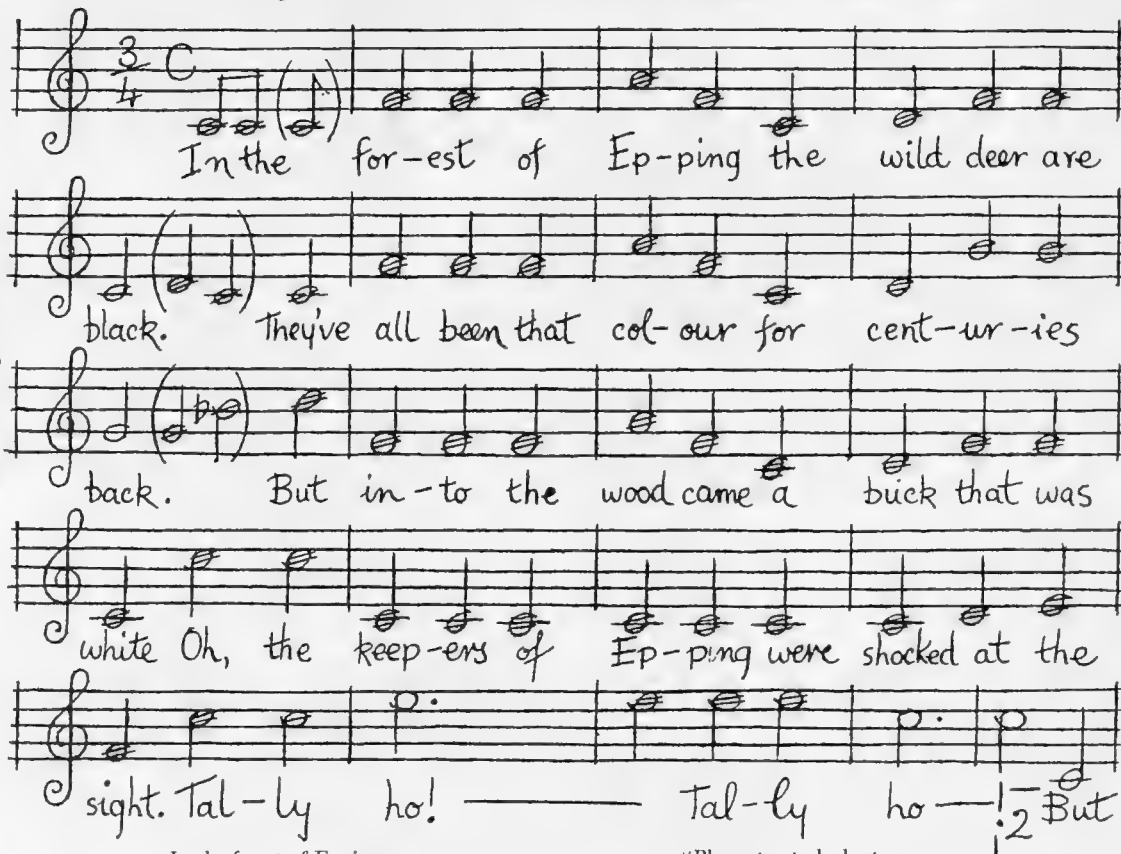 3/4 C
In the for-est of Ep-ping the wild deer are
black. They've all been that col-our for cent-ur-ies
back. But in-to the wood came a buck that was
white Oh, the keep-ers of Ep-ping were shocked at the
sight. Tal-ly ho! Tal-ly ho-! 2 But